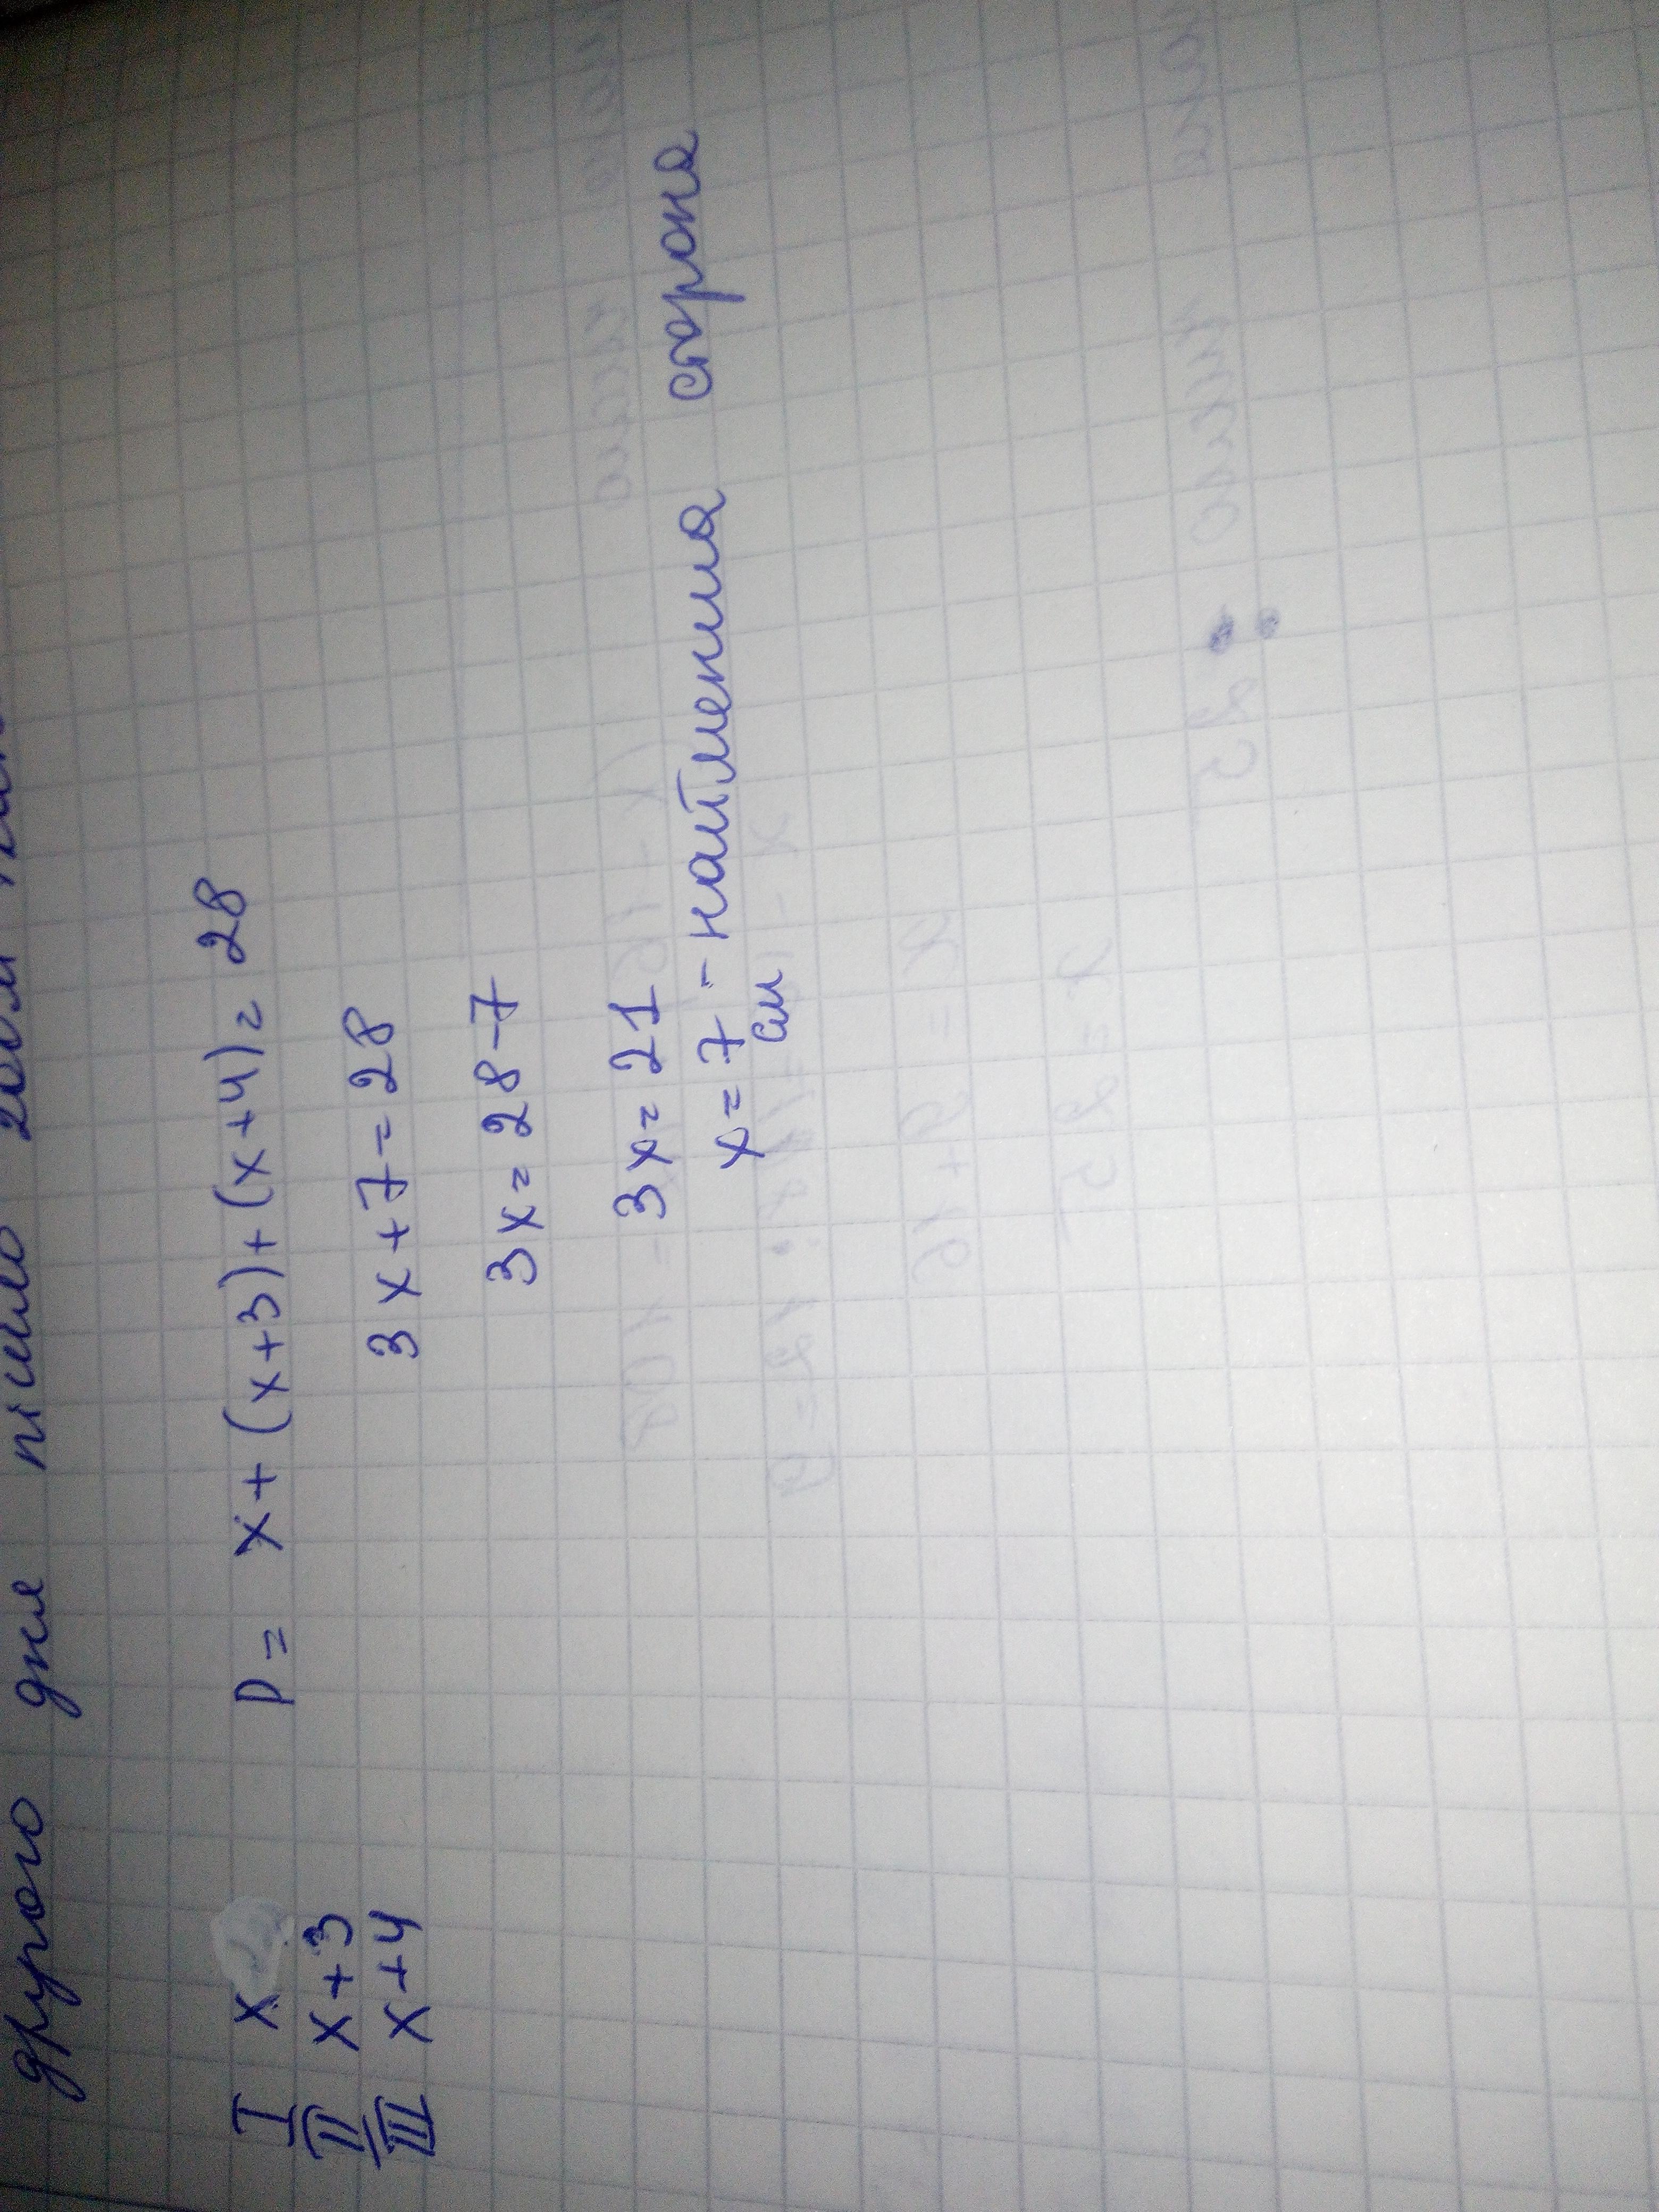 другого дня пішло
I x
II x+3
III x+4
P= x+(x+3)+(x+4)= 28
3x+7=28
3x=28-7
3x=21
x=7 - найменша сторона
см